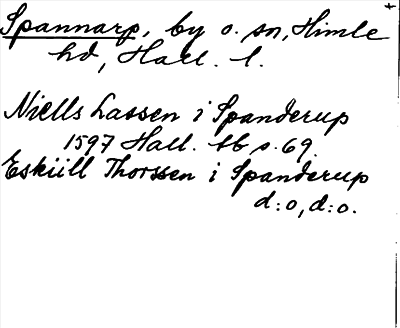 Spannarp, by o. sn, Himle
hd, Hall. l.
Niells Lassen i Spanderup
1597 Hall. tb s. 69.
Eskiill Thorssen i Spanderup
d:o, d:o.